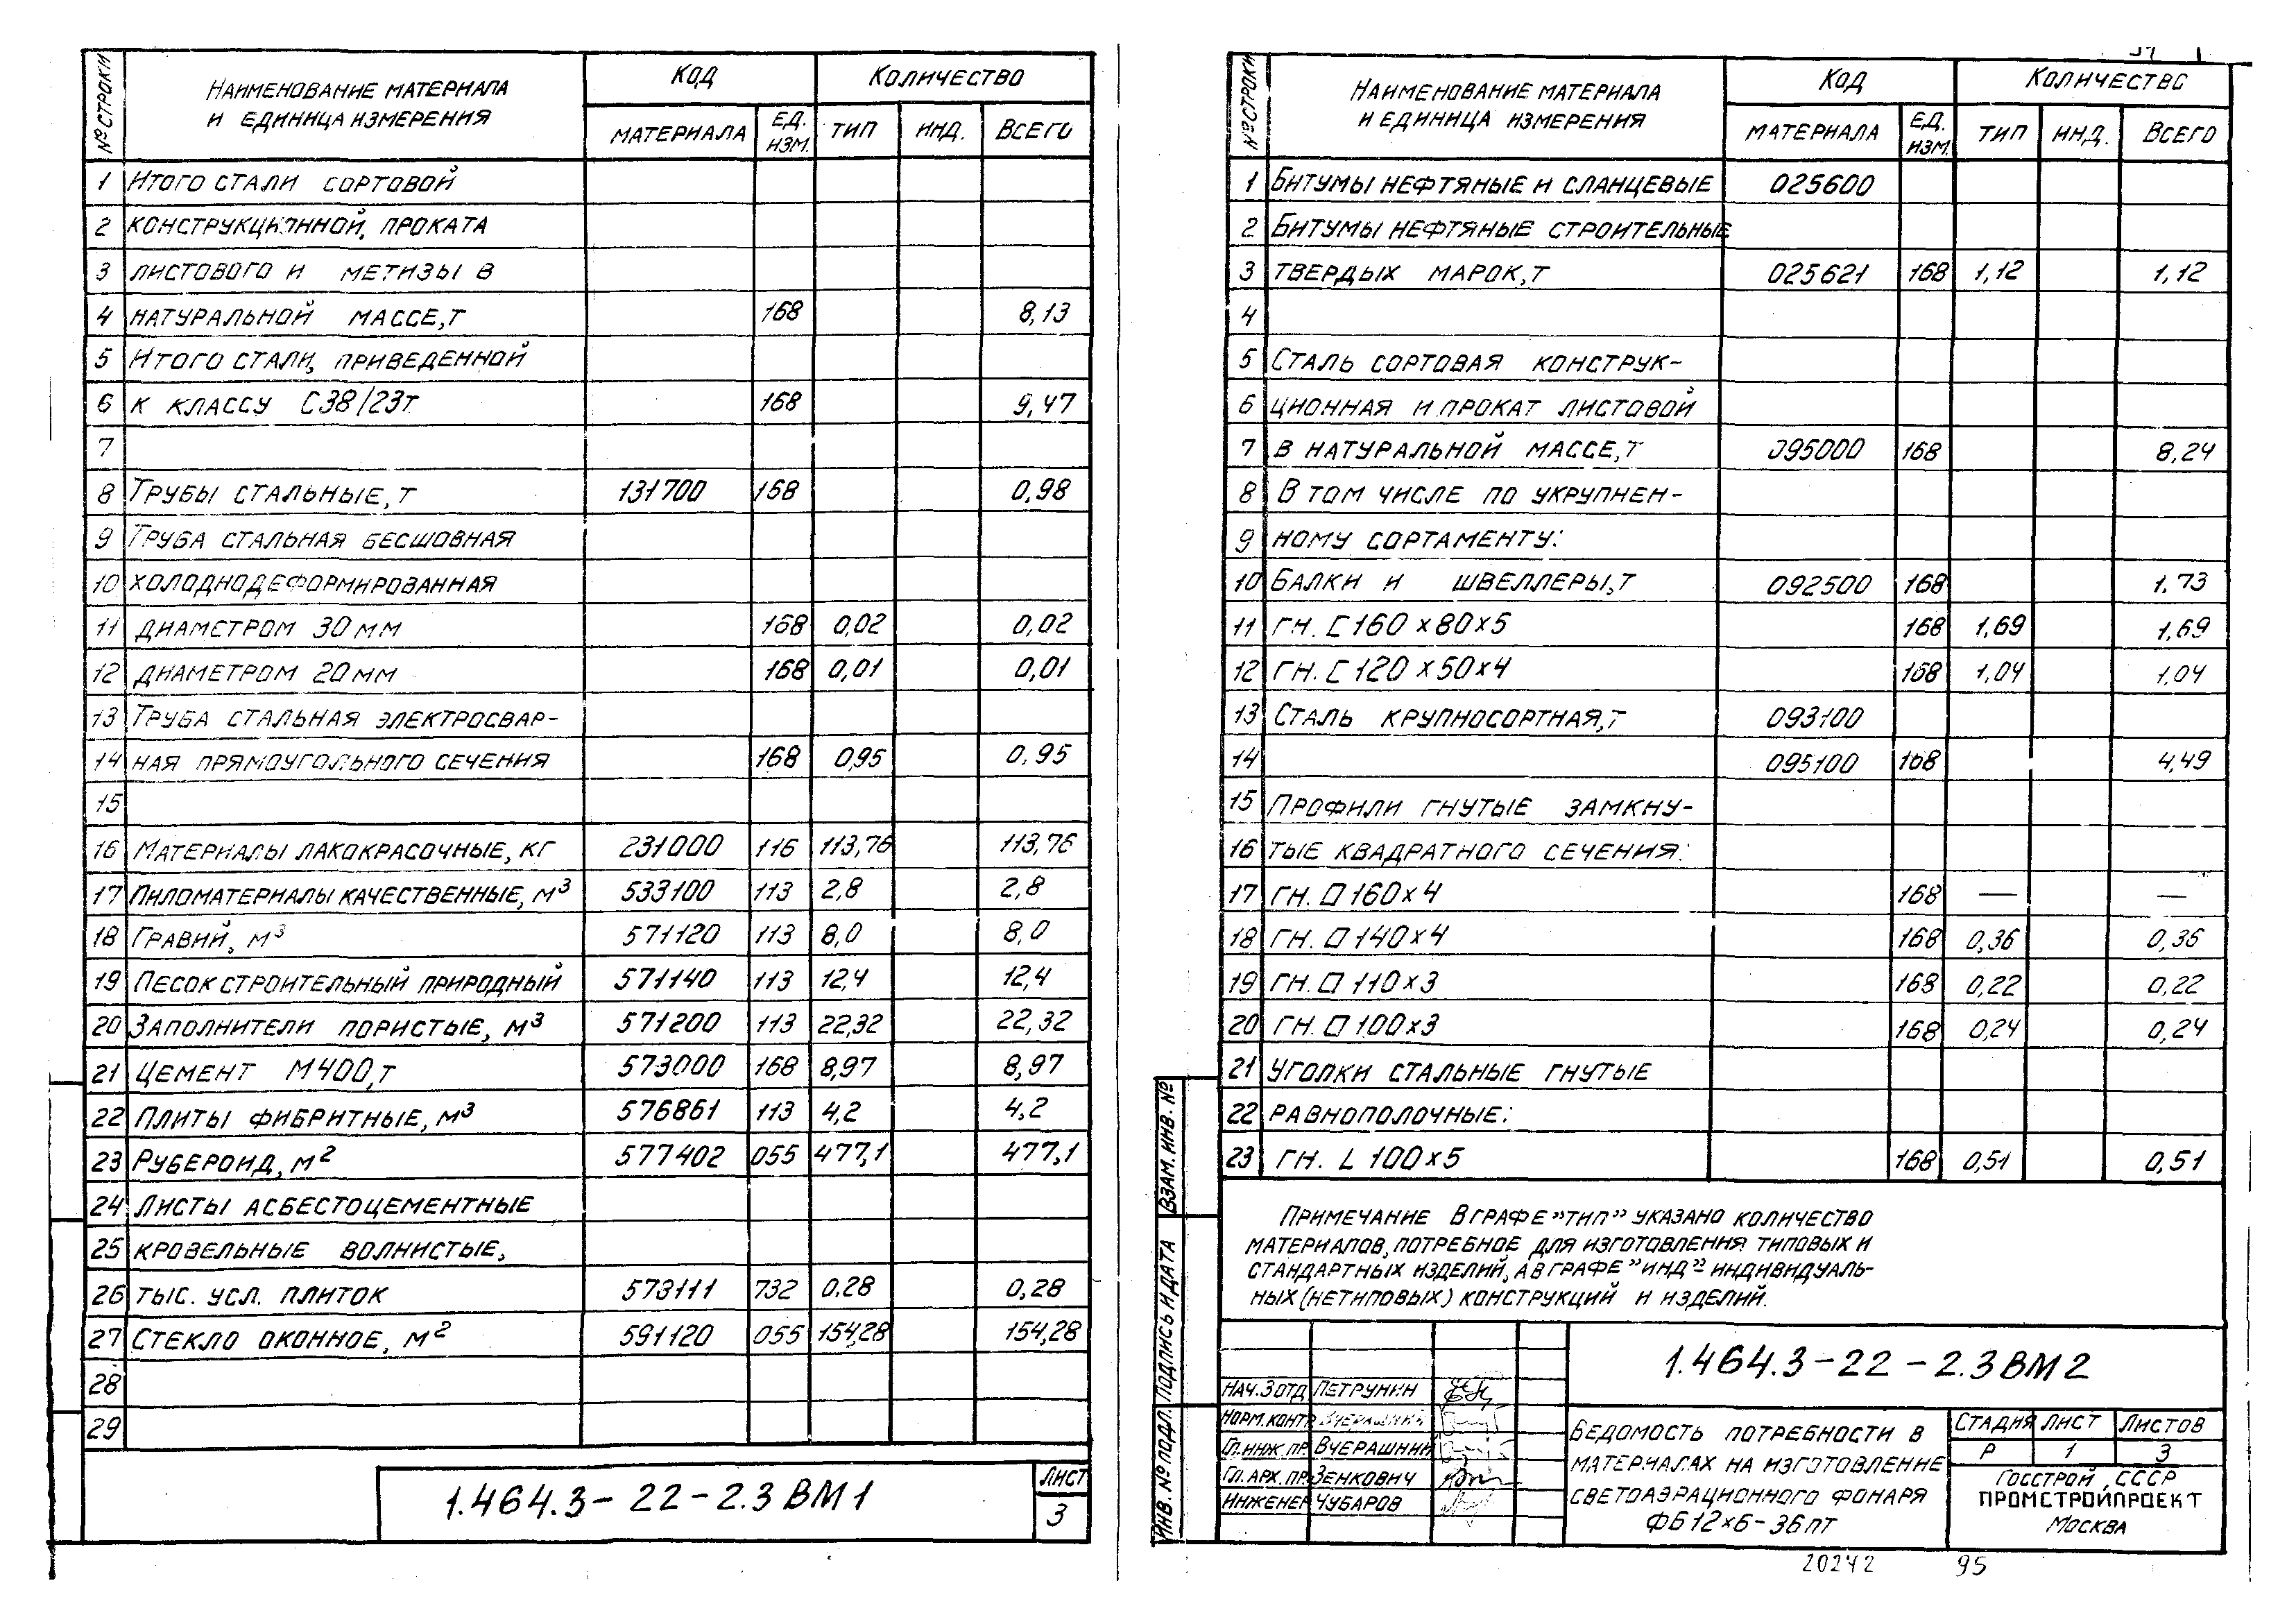 № строки | Наименование материала и единица измерения | Код | Количество
материала | ед. изм. | тип | инд. | Всего
1 Итого стали сортовой
2 конструкционной, проката
3 листового и метизы в
4 натуральной массе, т 168 8,13
5 Итого стали, приведенной
6 к классу С38/23т 168 9,47
7
8 Трубы стальные, т 131700 168 0,98
9 Труба стальная бесшовная
10 холоднодеформированная
11 диаметром 30 мм 168 0,02 0,02
12 диаметром 20 мм 168 0,01 0,01
13 Труба стальная электросвар-
14 ная прямоугольного сечения 168 0,95 0,95
15
16 Материалы лакокрасочные, кг 231000 116 113,76 113,76
17 Пиломатериалы качественные, м³ 533100 113 2,8 2,8
18 Гравий, м³ 571120 113 8,0 8,0
19 Песок строительный природный 571140 113 12,4 12,4
20 Заполнители пористые, м³ 571200 113 22,32 22,32
21 Цемент М400, т 573000 168 8,97 8,97
22 Плиты фибритные, м³ 576861 113 4,2 4,2
23 Рубероид, м² 577402 055 477,1 477,1
24 Листы асбестоцементные
25 кровельные волнистые,
26 тыс. усл. плиток 573111 732 0,28 0,28
27 Стекло оконное, м² 591120 055 154,28 154,28
28
29
1.464.3-22-2.3 ВМ1
Лист
3
№ строки | Наименование материала и единица измерения | Код | Количество
материала | ед. изм. | тип | инд. | Всего
1 Битумы нефтяные и сланцевые 025600
2 Битумы нефтяные строительные
3 твердых марок, т 025621 168 1,12 1,12
4
5 Сталь сортовая конструк-
6 ционная и прокат листовой
7 в натуральной массе, т 095000 168 8,24
8 В том числе по укрупнен-
9 ному сортаменту:
10 Балки и швеллеры, т 092500 168 1.73
11 гн. [ 160 х 80 х 5 168 1,69 1,69
12 гн. [ 120 х 50 х 4 168 1,04 1,04
13 Сталь крупносортная, т 093100
14 095100 168 4,49
15 Профили гнутые замкну-
16 тые квадратного сечения:
17 гн. □ 160х4 168 — —
18 гн. □ 140х4 168 0,36 0,36
19 гн. □ 110х3 168 0,22 0,22
20 гн. □ 100х3 168 0,24 0,24
21 Уголки стальные гнутые
22 равнополочные:
23 гн. L 100х5 168 0,51 0,51
Примечание В графе "тип" указано количество
материалов, потребное для изготовления типовых и
стандартных изделий, а в графе "инд" индивидуаль-
ных (нетиповых) конструкций и изделий.
Взам. инв. №
Подпись и дата
Инв. № подл.
1.464.3-22-2.3 ВМ2
Нач. 3 отд Петрунин
Норм. контр. Вчерашний
Гл. инж. пр. Вчерашний
Гл. арх. пр. Зенкович
Инженер Чубаров
Ведомость потребности в
материалах на изготовление
светоаэрационного фонаря
ФБ12х6-36пт
Стадия Лист Листов
Р 1 3
Госстрой СССР
Прометройпроект
Москва
20242 95